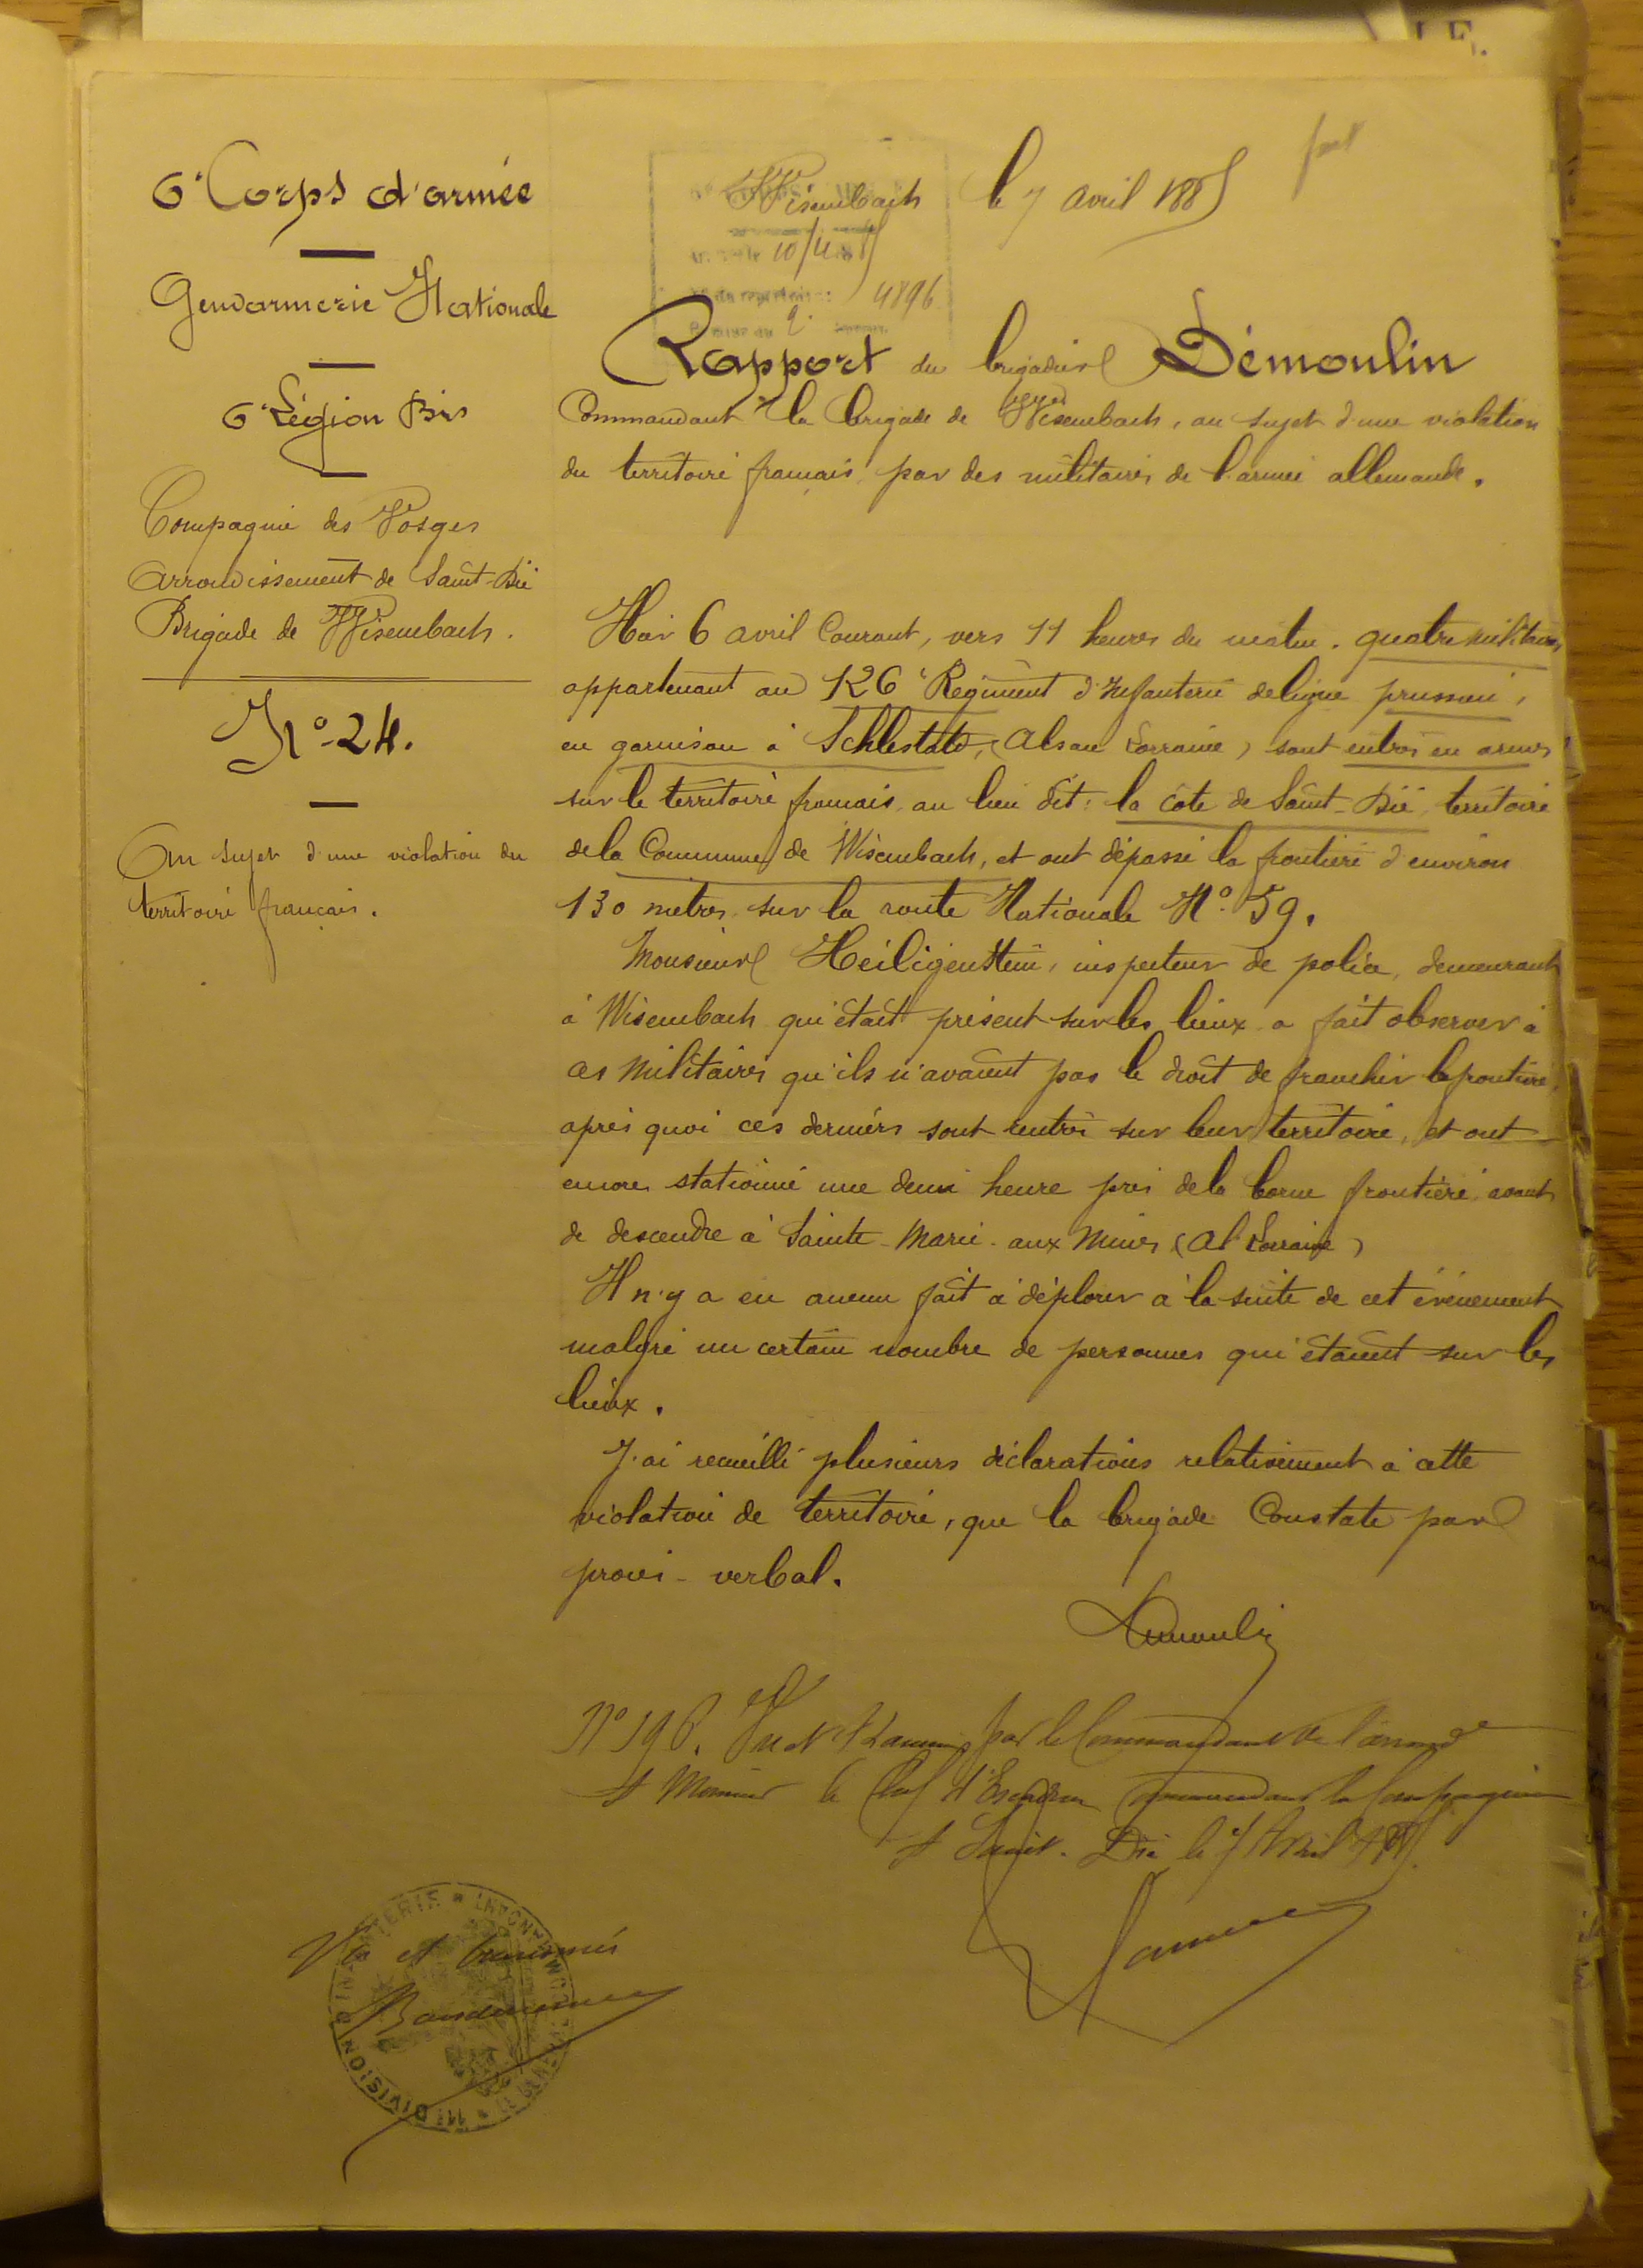 6e Corps d'armée
Gendarmerie Nationale
6e Légion Bis
Compagnie des Vosges
Arrondissement de Saint-Dié
Brigade de Wisembach.
No 24.
Au sujet d'une violation du
territoire français.
Wisembach le 7 avril 188
10/4
4896
Rapport du brigadier Démoulin
Commandant la brigade de Wisembach, au sujet d'une violation
du territoire français par des militaires de l'armée allemande.
Hier 6 avril Courant, vers 11 heures du matin. quatre militaires
appartenant au 126e Régiment d'Infanterie de ligne prussien,
en garnison à Schlestatd, (Alsace Lorraine) sont entrés en armes
sur le territoire français au lieu dit: la côte de Saint-Dié, territoire
de la Commune de Wisembach, et ont dépassé la frontière d'environ
130 mètres sur la route Nationale No. 59.
Monsieur Heiligenstein, inspecteur de police, demeurant
à Wisembach qui était présent sur les lieux a fait observer à
ces militaires qu'ils n'avaient pas le droit de franchir la frontière,
après quoi ces derniers sont rentrés sur leur territoire, et ont
encore stationné une demi heure près de la borne frontière avant
de descendre à Sainte-Marie-aux Mines (Al Lorraine)
Il n'y a eu aucun fait à déplorer à la suite de cet événement
malgré un certain nombre de personnes qui étaient sur les
lieux.
J'ai recueilli plusieurs déclarations relativement à cette
violation de territoire, que la brigade Constate par
procès-verbal.
Demoulin
No 196. Vu et transmis par le Commandant de l'arrondt
à Monsieur le Chef d'Escadron Commandant la Compagnie
à Saint-Dié le 7 Avril
Vu et transmis
11e DIVISION D'INFANTERIE